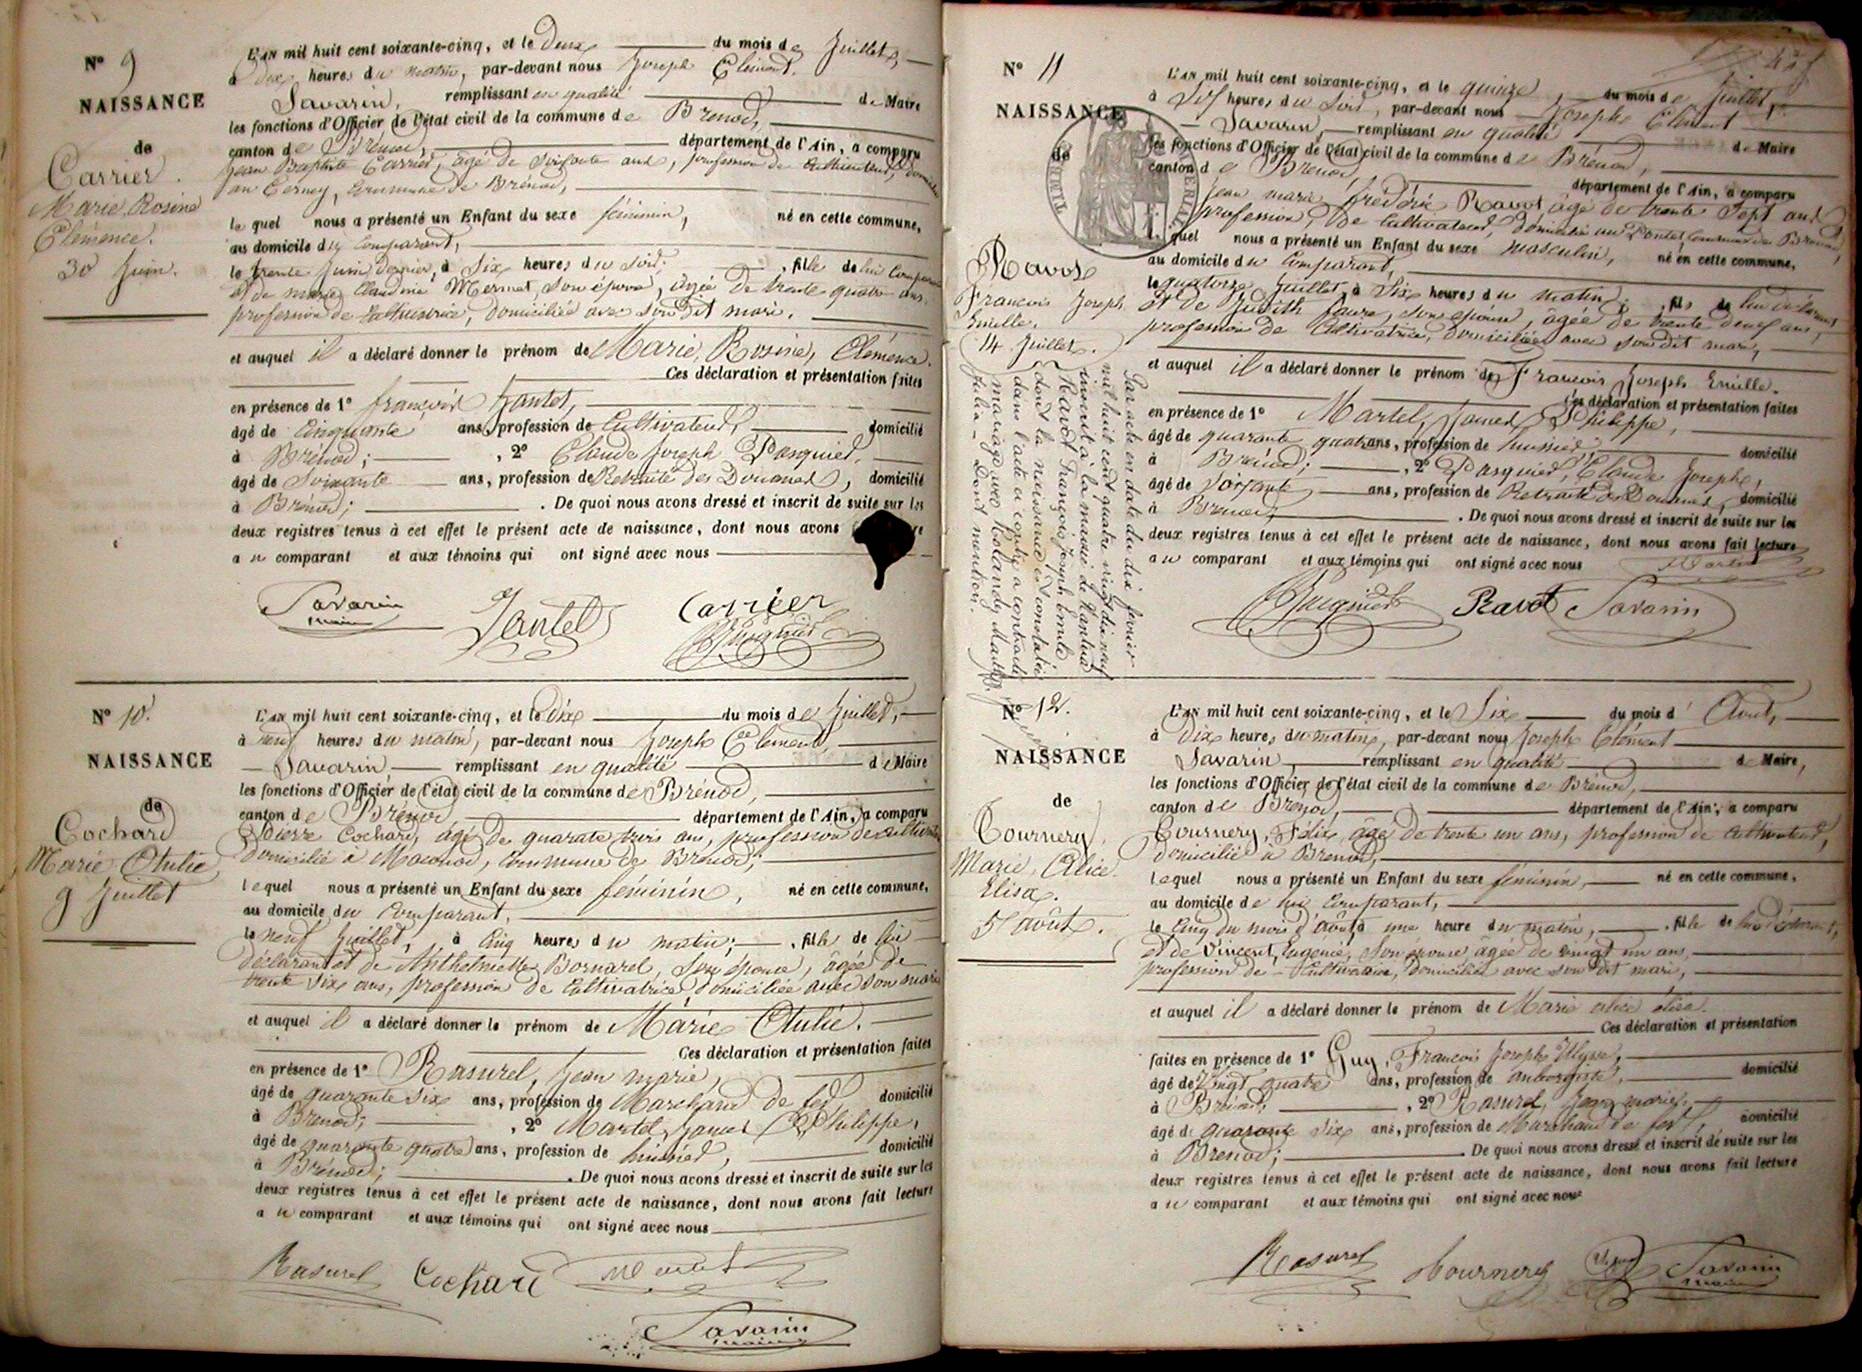 N° 9
NAISSANCE
de
Carrier
Marie Rosine
Clémence.
30 Juin.
L'AN mil huit cent soixante-cinq, et le deux du mois de Juillet,
à dix heures du matin, par-devant nous Joseph Clément
Savarin, remplissant en qualité de Maire
les fonctions d'Officier de l'état civil de la commune de Brénod,
canton de Brénod, département de l'Ain, a comparu
Jean Baptiste Carrier, âgé de soixante ans, profession de cultivateur, domicilié
au Cerney, commune de Brénod,
lequel nous a présenté un Enfant du sexe féminin, né en cette commune,
au domicile du comparant,
le trente Juin dernier, à Six heures du soir, fille de lui comparant
et de marie Claudine Mermet son épouse, âgée de trente quatre ans,
profession de cultivatrice, domiciliée avec son dit mari.
et auquel il a déclaré donner le prénom de Marie, Rosine, Clémence.
Ces déclaration et présentation faites
en présence de 1° françois Jantet,
âgé de cinquante ans, profession de Cultivateur, domicilié
à Brénod; , 2° Claude Joseph Pasquier,
âgé de soixante ans, profession de Retraité des Douanes, domicilié
à Brénod; . De quoi nous avons dressé et inscrit de suite sur les
deux registres tenus à cet effet le présent acte de naissance, dont nous avons
au comparant et aux témoins qui ont signé avec nous
Savarin
maire
Jantet
Carrier
Pasquier
N° 10.
NAISSANCE
de
Cochard
Marie Otulie
9 Juillet
L'AN mil huit cent soixante-cinq, et le dix du mois de Juillet,
à neuf heures du matin, par-devant nous Joseph Clément
Savarin remplissant en qualité de Maire
les fonctions d'Officier de l'état civil de la commune de Brénod,
canton de Brénod département de l'Ain, a comparu
Pierre Cochard, âgé de quarate trois ans, profession de cultivateur
domicilié à Macconod, commune de Brénod;
lequel nous a présenté un Enfant du sexe féminin, né en cette commune,
au domicile du comparant,
le neuf Juillet, à cinq heures du matin; , fille de lui
déclarant et de Anthelmette Bornarel, son épouse, âgée de
trente six ans, profession de cultivatrice domiciliée avec son mari
et auquel il a déclaré donner le prénom de Marie Otulie.
Ces déclaration et présentation faites
en présence de 1° Rasurel, Jean marie,
âgé de quarante six ans, profession de Marchand de fer domicilié
à Brénod; , 2° Martel, James Philippe,
âgé de quarante quatre ans, profession de huissier, domicilié
à Brénod; . De quoi nous avons dressé et inscrit de suite sur les
deux registres tenus à cet effet le présent acte de naissance, dont nous avons fait lecture
au comparant et aux témoins qui ont signé avec nous
Rasurel Cochard Martel
Savarin
maire
N° 11
NAISSANCE
de
Ravot
François Joseph
Emille.
14 Juillet.
Par acte en date du dix février
mil huit cent quatre vingt dix neuf
inscrit à la mairie de Nantua
Ravot François Joseph Emile
dont la naissance est constatée
dans l'acte ci contre a contracté
mariage avec
Julia - Dont mention.
L'AN mil huit cent soixante-cinq, et le quinze du mois de Juillet,
à Six heures du soir, par-devant nous Joseph Clément
Savarin, remplissant en qualité de Maire
les fonctions d'Officier de l'état civil de la commune de Brénod,
canton de Brénod, département de l'Ain, a comparu
Jean marie frédéric Ravot âgé de trente Sept ans
profession de cultivateur, domicilié au Pontet commune de Brénod,
lequel nous a présenté un Enfant du sexe masculin, né en cette commune,
au domicile du comparant,
le quatorze Juillet, à Six heures du matin; , fils de lui déclarant
et de Judith faure, son épouse, âgée de trente deux ans,
profession de cultivatrice, domiciliée avec son dit mari,
et auquel il a déclaré donner le prénom de François Joseph Emille.
Ces déclaration et présentation faites
en présence de 1° Martel, James Philippe,
âgé de quarante quatre ans, profession de huissier, domicilié
à Brénod; , 2° Pasquier, Claude Joseph,
âgé de soixante ans, profession de Retraité des Douanes, domicilié
à Brénod, . De quoi nous avons dressé et inscrit de suite sur les
deux registres tenus à cet effet le présent acte de naissance, dont nous avons fait lecture
au comparant et aux témoins qui ont signé avec nous
Martel
Pasquier Ravot Savarin
N° 12.
NAISSANCE
de
Tournery
Marie Alice
Elisa.
5 août.
L'AN mil huit cent soixante-cinq, et le Six du mois d'Août,
à dix heures du matin, par-devant nous Joseph Clément
Savarin, remplissant en qualité de Maire,
les fonctions d'Officier de l'état civil de la commune de Brénod,
canton de Brénod, département de l'Ain, a comparu
Tournery, Félix, âgé de trente un ans, profession de cultivateur,
domicilié à Brénod,
lequel nous a présenté un Enfant du sexe féminin, né en cette commune,
au domicile de lui comparant,
le cinq du mois d'août à une heure du matin, , fille de lui déclarant,
et de Vincent, Eugénie, son épouse âgée de vingt un ans,
profession de Cultivatrice, domiciliée avec son dit mari,
et auquel il a déclaré donner le prénom de Marie alice élisa.
Ces déclaration et présentation
faites en présence de 1° Guy, François Joseph Ulysse,
âgé de vingt quatre ans, profession de aubergiste, domicilié
à Brénod; , 2° Rasurel, Jean marie,
âgé de quarante six ans, profession de Marchand de fer, domicilié
à Brénod; . De quoi nous avons dressé et inscrit de suite sur les
deux registres tenus à cet effet le présent acte de naissance, dont nous avons fait lecture
au comparant et aux témoins qui ont signé avec nous
Rasurel Tournery Savarin
maire